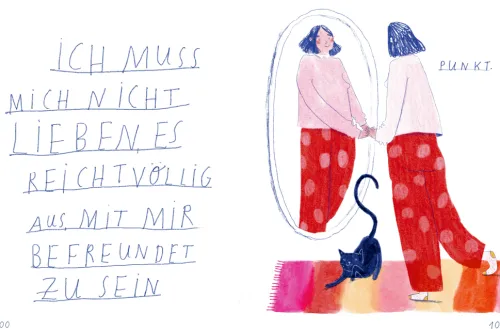 ICH MUSS
MICH NICHT
LIEBEN, ES
REICHT VÖLLIG
AUS, MIT MIR
BEFREUNDET
ZU SEIN
PUNKT.
00
10